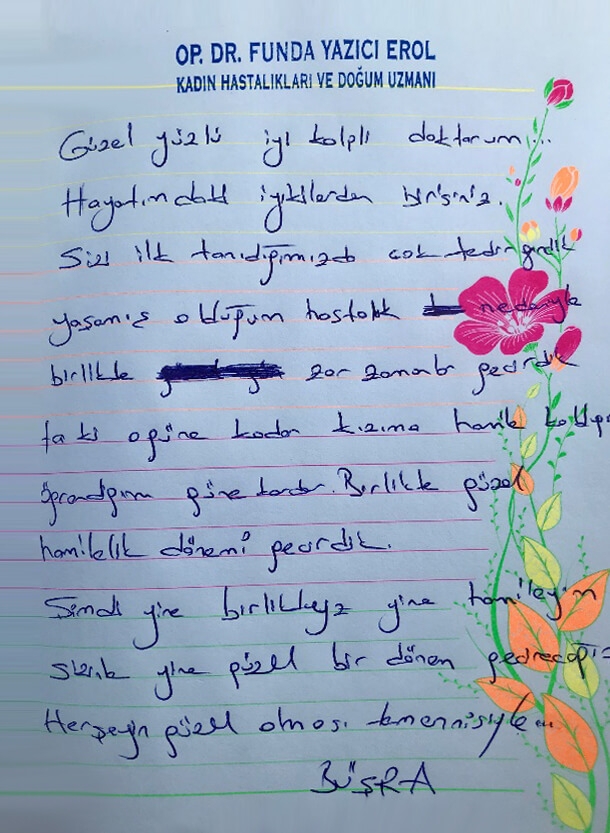 OP. DR. FUNDA YAZICI EROL
KADIN HASTALIKLARI VE DOĞUM UZMANI
Güzel yüzlü iyi kalpli doktorum...
Hayatımdaki iyikilerden birisiniz.
Sizi ilk tanıdığımızda çok tedirgindik
yaşamış olduğum hastalık nedeniyle
birlikte zor zamanlar geçirdik
ta ki o güne kadar kızıma hamile kaldığımı
öğrendiğim güne kadar. Birlikte güzel
hamilelik dönemi geçirdik.
Şimdi yine birlikteyiz yine hamileyim
sizinle yine güzel bir dönem geçireceğiz
Herşeyin güzel olması temennisiyle...
BÜŞRA